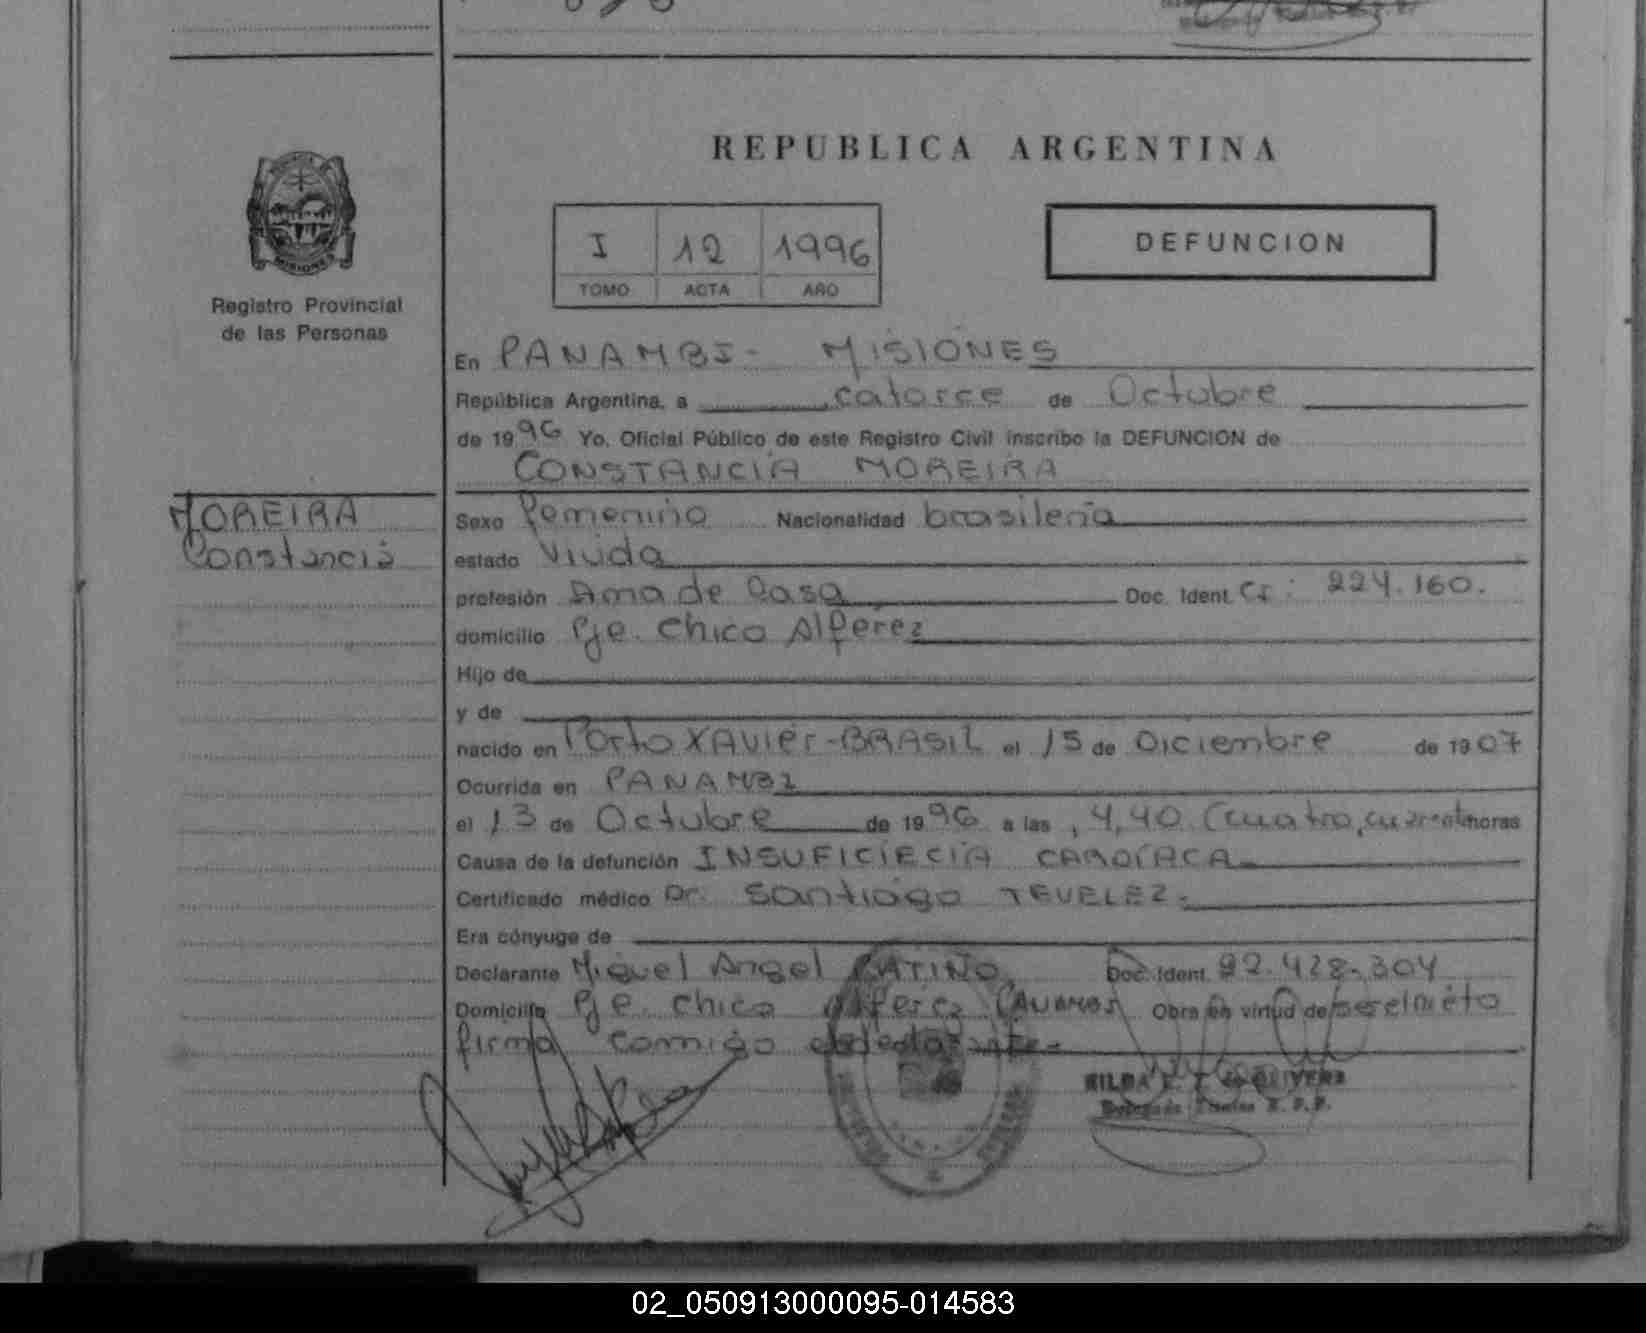 REPUBLICA ARGENTINA
MISIONES
Registro Provincial
de las Personas
I 12 1996
TOMO ACTA AÑO
DEFUNCION
En PANAMBI - MISIONES
República Argentina, a catorce de Octubre
de 1996 Yo, Oficial Público de este Registro Civil inscribo la DEFUNCION de
CONSTANCIA MOREIRA
MOREIRA
Constancia
Sexo femenino Nacionalidad brasileña
estado Viuda
profesión Ama de Casa Doc. Ident. CI: 224.160.
domicilio Pje. Chico Alferez
Hijo de
y de
nacido en Porto XAVIER - BRASIL el 15 de Diciembre de 1907
Ocurrida en PANAMBI
el 13 de Octubre de 1996 a las 4,40 (cuatro, cuarenta horas
Causa de la defunción INSUFICIECIA CARDIACA
Certificado médico Dr. Santiago TEVELEZ.
Era cónyuge de
Declarante Miguel Angel PATIÑO Doc. Ident. 92.428.304
Domicilio Pje. Chico Alferez PANAMBI Obra en virtud de ser el nieto
firma comigo el declarante -
02_050913000095-014583